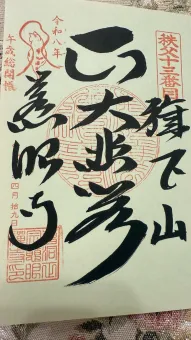 秩父十三番
旗下山
大悲殿
慈眼寺
令和八年
午歳総開帳
四月拾九日